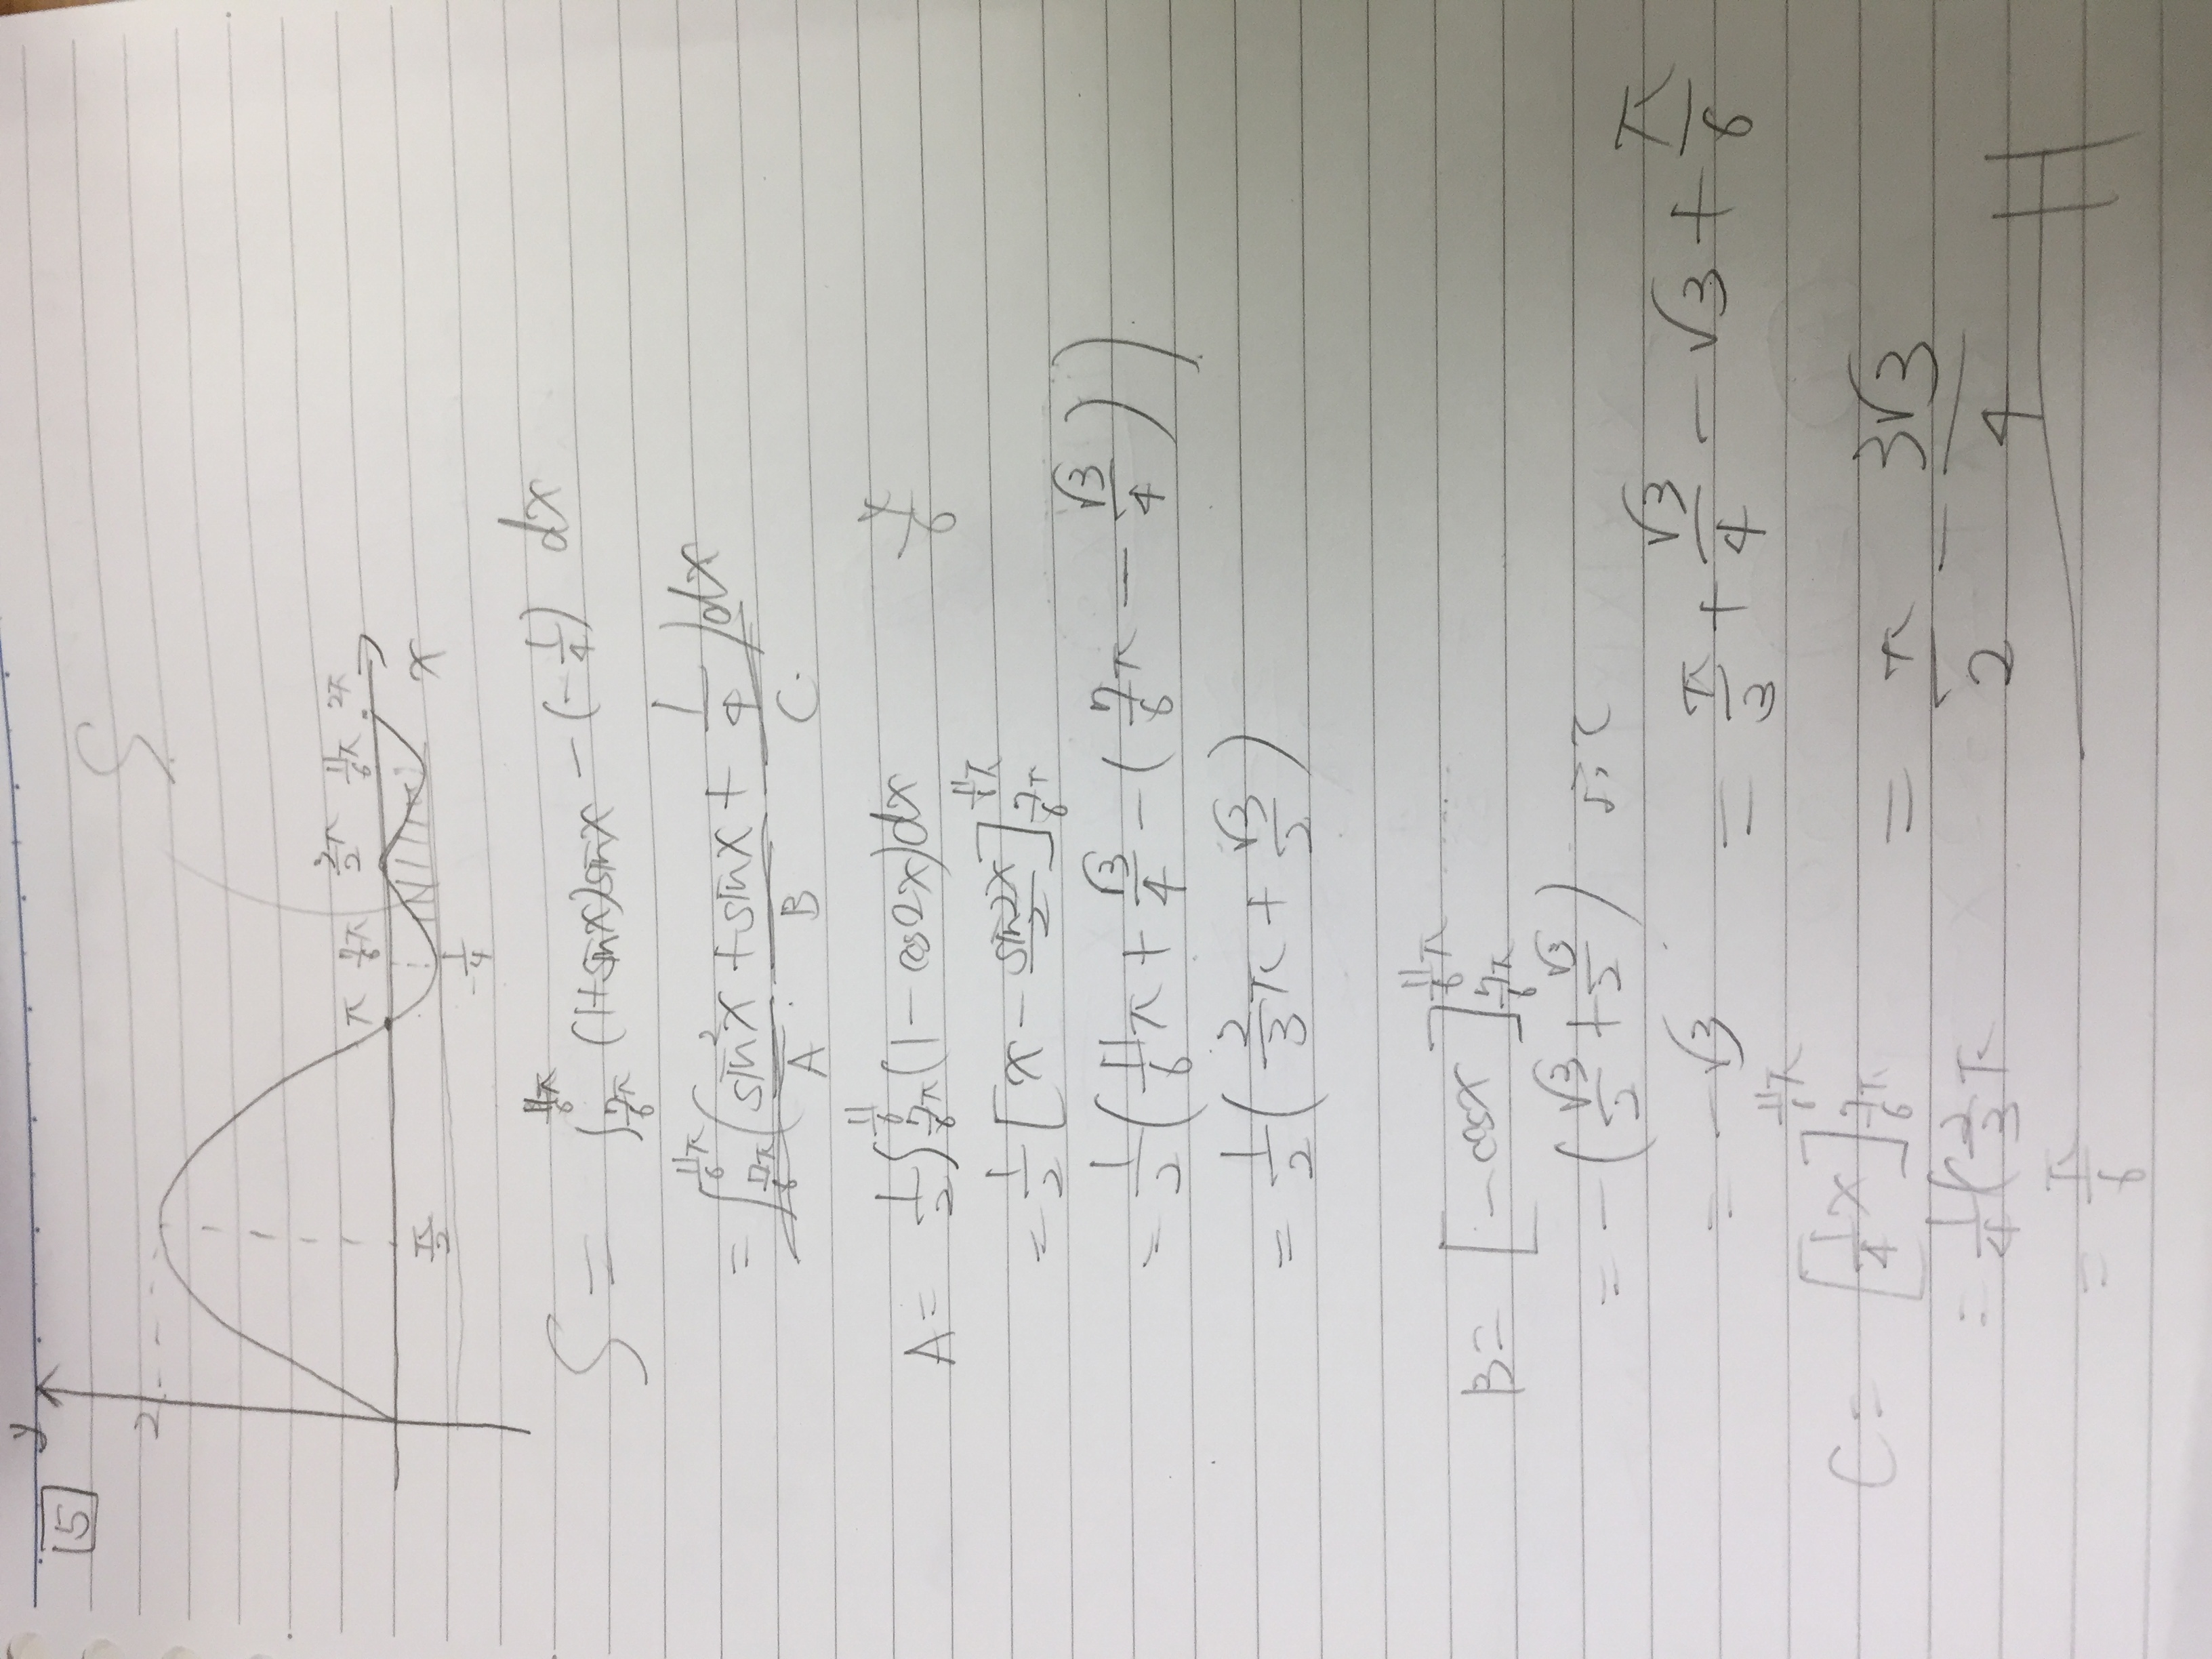 5
y
2
π 7/6π 3/2π 11/6π 2π
x
π/2
-1/4
S = ∫_{7/6π}^{11/6π} (1+sinx)sinx - (-1/4) dx
= ∫_{7/6π}^{11/6π} (sin²x + sinx + 1/4)dx
A B C
A = 1/2 ∫_{7/6π}^{11/6} (1 - cos2x)dx
= 1/2 [x - sin2x/2]_{7/6π}^{11/6π}
= 1/2 (11/6π + √3/4 - (7/6π - √3/4))
= 1/2 (2/3π + √3/2)
B = [-cosx]_{7/6π}^{11/6π}
= -(√3/2 + √3/2)
= -√3
C = [1/4x]_{7/6π}^{11/6π}
= 1/4(2/3π
= π/6
よって
= π/3 + √3/4 - √3 + π/6
= π/2 - 3√3/4